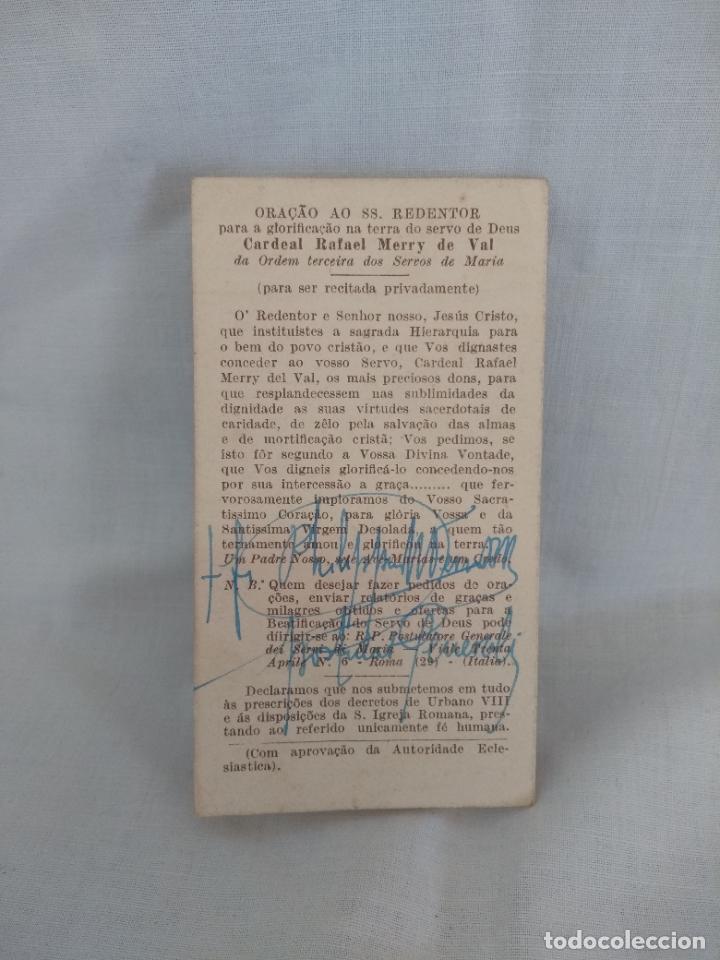 ORAÇÃO AO SS. REDENTOR
para a glorificação na terra do servo de Deus
Cardeal Rafael Merry de Val
da Ordem terceira dos Servos de Maria
(para ser recitada privadamente)
O' Redentor e Senhor nosso, Jesús Cristo,
que instituistes a sagrada Hierarquia para
o bem do povo cristão, e que Vos dignastes
conceder ao vosso Servo, Cardeal Rafael
Merry del Val, os mais preciosos dons, para
que resplandecessem nas sublimidades da
dignidade as suas virtudes sacerdotais de
caridade, de zêlo pela salvação das almas
e de mortificação cristã; Vos pedimos, se
isto fôr segundo a Vossa Divina Vontade,
que Vos digneis glorificá-lo concedendo-nos
por sua intercessão a graça......... que fer-
vorosamente imploramos do Vosso Sacra-
tissimo Coração, para glória Vossa e da
Santissima Virgem Desolada, a quem tão
ternamente amou e glorificou na terra.
Um Padre Nosso, sete Ave-Marias e um Credo.
N. B.ª Quem desejar fazer pedidos de ora-
ções, enviar relatórios de graças e
milagres obtidos e ofertas para a
Beatificação do Servo de Deus pode
diirigir-se ao: R. P. Postulatore Generale
dei Servi di Maria - Viale Trenta
Aprile N. 6 - Roma (29) - (Italia).
Declaramos que nos submetemos em tudo
às prescrições dos decretos de Urbano VIII
e ás disposições da S. Igreja Romana, pres-
tando ao referido unicamente fé humana.
(Com aprovação da Autoridade Ecle-
siastica).
todocoleccion
todocoleccion.net